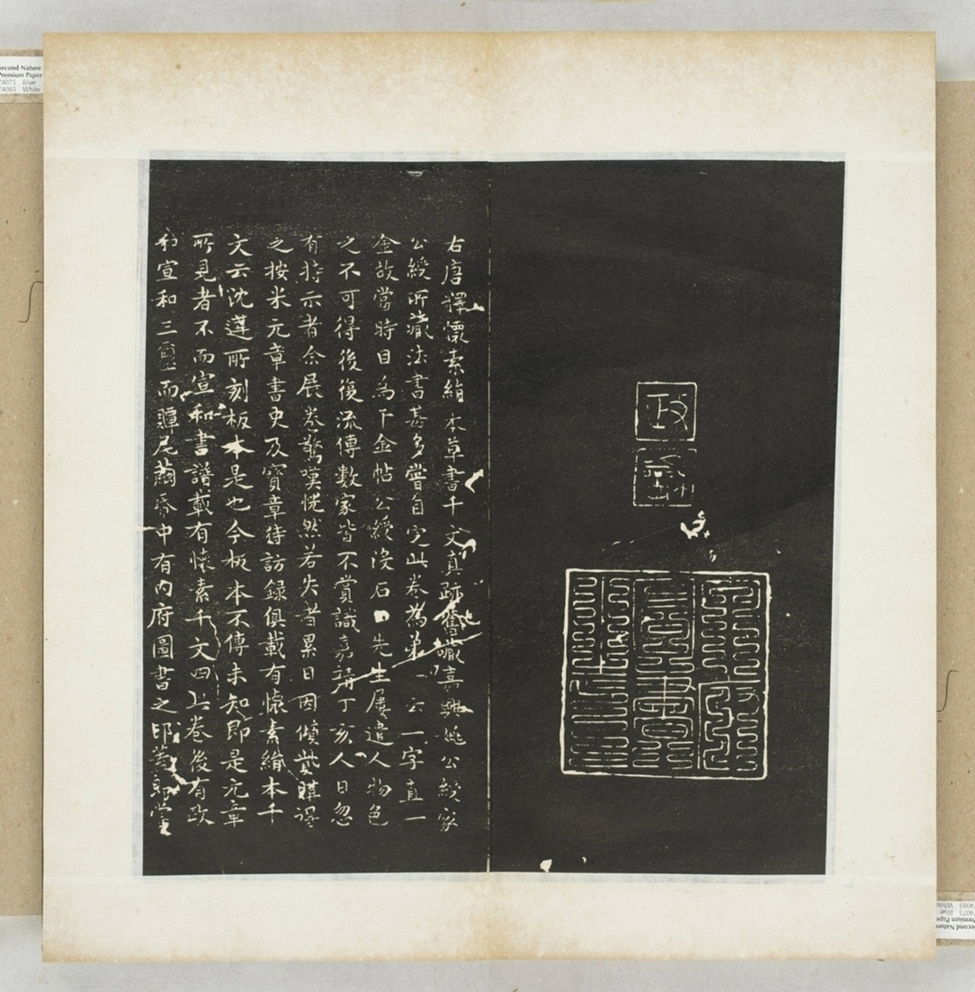 Second Nature
Premium Paper
74075 Blue
74085 White
政
龢
內府圖書之印
右唐釋懷素絹本草書千文真跡舊藏嘉興姚公綬家
公綬所藏法書甚多嘗自定此卷為第一云一字直一
金故當時目為千金帖公綬沒石先生屢遣人物色
之不可得後復流傳數家皆不賞識嘉靖丁亥人日忽
有持示者余展卷驚嘆恍然若失者累日因傾貲購得
之按米元章書史及寶章待訪錄俱載有懷素絹本千
文云沈遘所刻板本是也今板本不傳未知即是元章
所見者不而宣和書譜載有懷素千文四此卷後有政
和宣和三璽而贉尾繭帋中有內府圖書之印蓋即當
Second Nature
Premium Paper
74075 Blue
74085 White